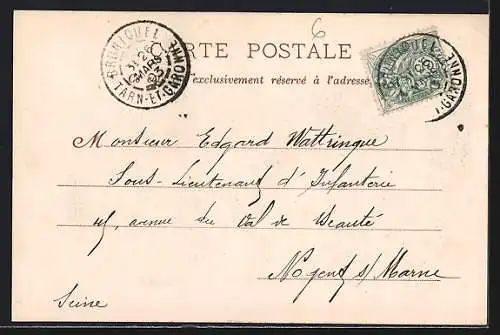 6
BRUNIQUEL
TARN-ET-GARONNE
RTE POSTALE
exclusivement réservé à l'adresse
Monsieur Edgard Wattringue
Sous-Lieutenant d'Infanterie
45, avenue du Val de Beauté
Nogent s/ Marne
Seine